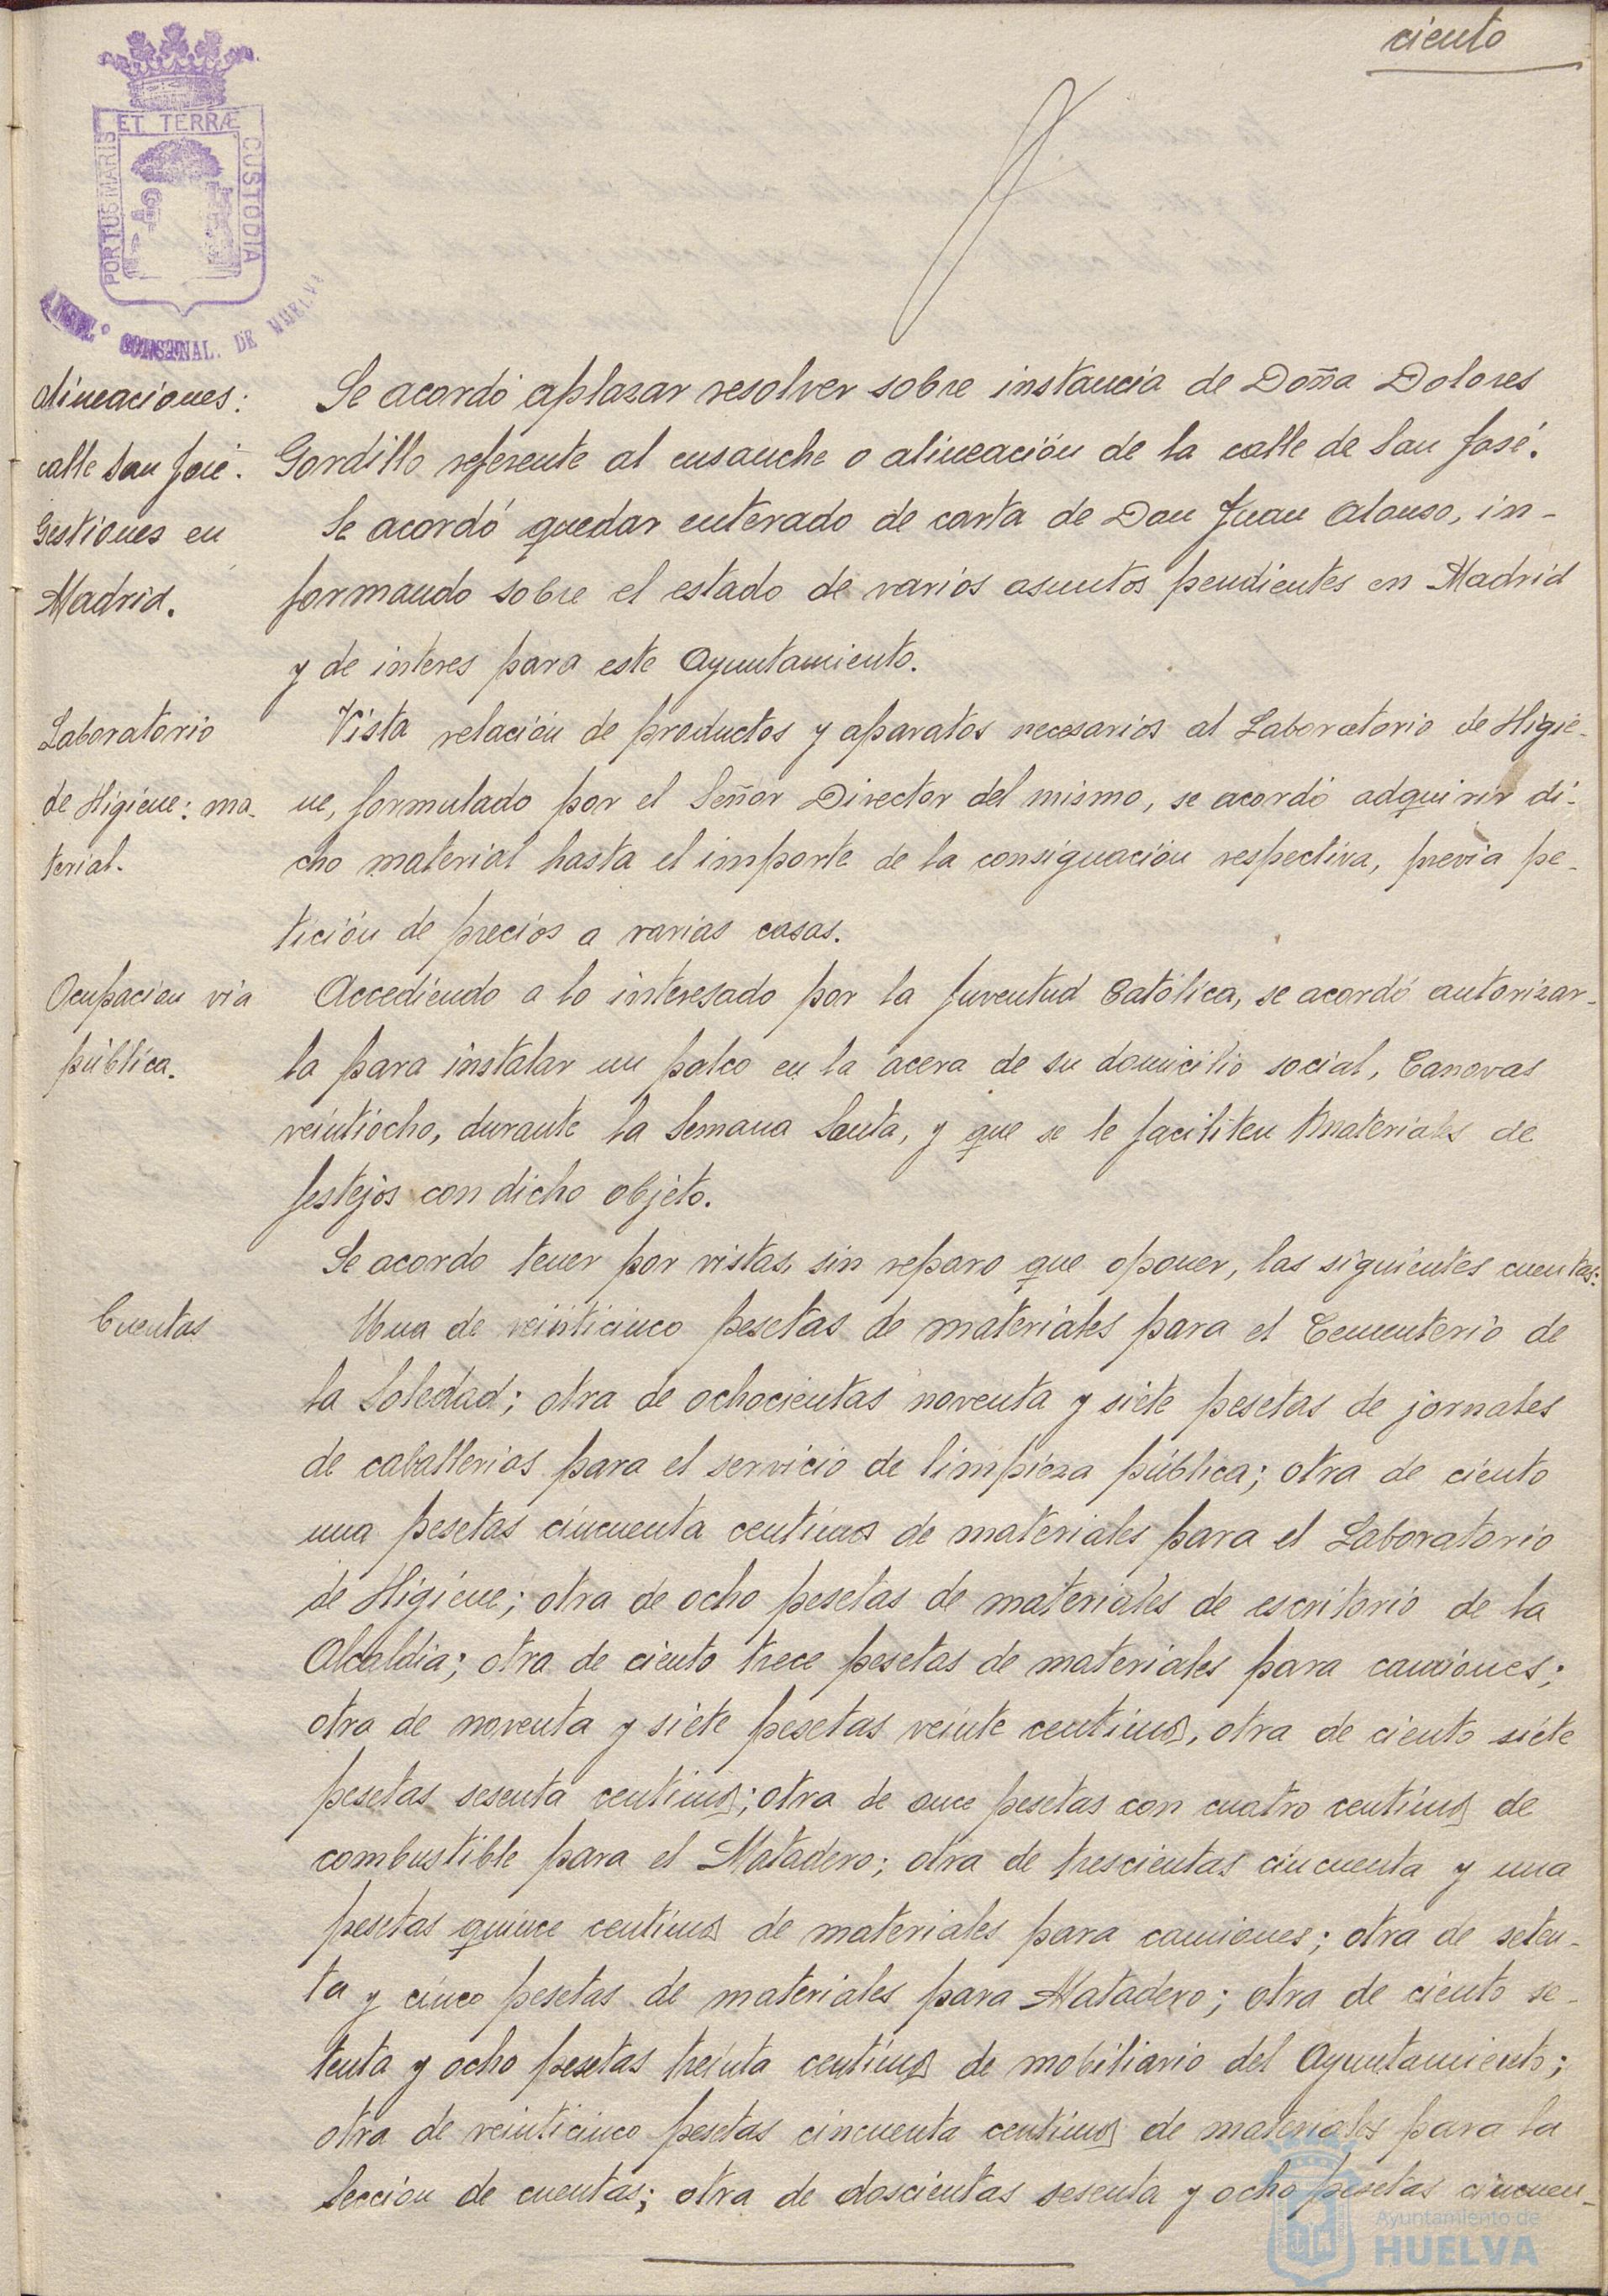 ciento
PORTUS MARIS ET TERRÆ CUSTODIA
DE HUELVA
Alineaciones:
calle San José.
Se acordó aplazar resolver sobre instancia de Doña Dolores
Gordillo referente al ensanche o alineación de la calle de San José.
Gestiones en
Madrid.
Se acordó quedar enterado de carta de Don Juan Alonso, in-
formando sobre el estado de varios asuntos pendientes en Madrid
y de interes para este Ayuntamiento.
Laboratorio
de Higiene: ma-
terial.
Vista relación de productos y aparatos necesarios al Laboratorio de Higie-
ne, formulado por el Señor Director del mismo, se acordó adquirir di-
cho material hasta el importe de la consignación respectiva, previa pe-
tición de precios a varias casas.
Ocupacion via
pública.
Accediendo a lo interesado por la Juventud Católica, se acordó autorizar-
la para instalar un palco en la acera de su domicilio social, Canovas
veintiocho, durante la Semana Santa, y que se le faciliten materiales de
festejos con dicho objeto.
Se acordo tener por vistas, sin reparo que oponer, las siguientes cuentas:
Cuentas
Una de veinticinco pesetas de materiales para el Cementerio de
la Soledad; otra de ochocientas noventa y siete pesetas de jornales
de caballerias para el servicio de limpieza pública; otra de ciento
una pesetas cincuenta centimos de materiales para el Laboratorio
de Higiene; otra de ocho pesetas de materiales de escritorio de la
Alcaldia; otra de ciento trece pesetas de materiales para camiones;
otra de noventa y siete pesetas veinte centimos, otra de ciento siete
pesetas sesenta centimos; otra de once pesetas con cuatro centimos de
combustible para el Matadero; otra de trescientas cincuenta y una
pesetas quince centimos de materiales para camiones; otra de seten-
ta y cinco pesetas de materiales para Matadero; otra de ciento se-
tenta y ocho pesetas treinta centimos de mobiliario del Ayuntamiento;
otra de veinticinco pesetas cincuenta centimos de materiales para la
Sección de cuentas; otra de doscientas sesenta y ocho pesetas cincuen-
Ayuntamiento de
HUELVA